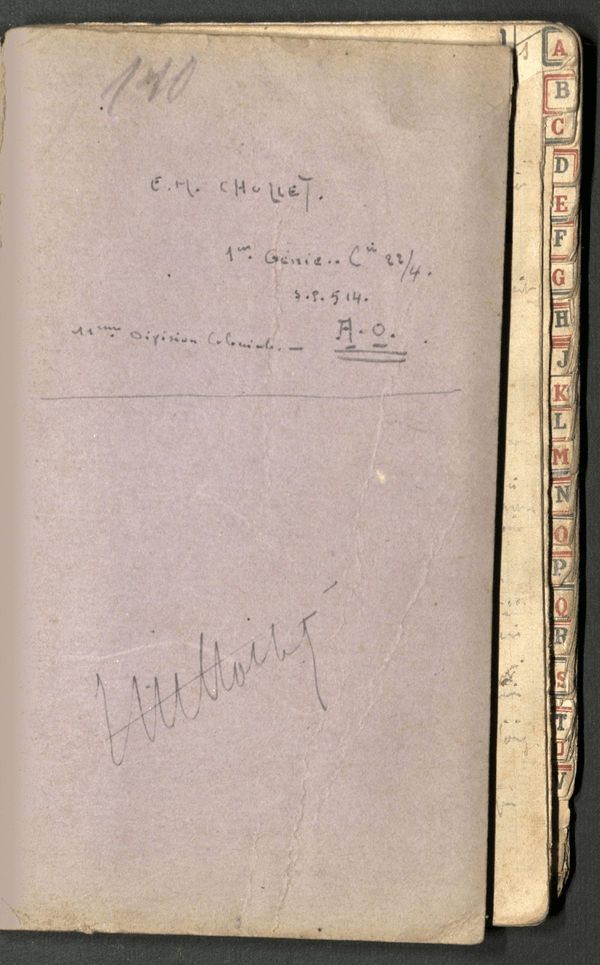 110
E.M. CHOLLET.
1er Génie.. Cie 22/4.
S.P. 514.
11ème Division Coloniale. _ A.O.
1
A
B
C
D
E
F
G
H
J
K
L
M
N
O
P
Q
R
S
T